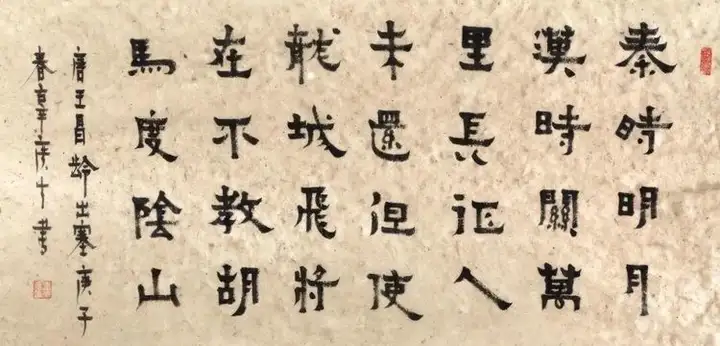 秦時明月
漢時關萬
里長征人
未還但使
龍城飛將
在不教胡
馬度陰山
唐王昌齡出塞庚子
春書